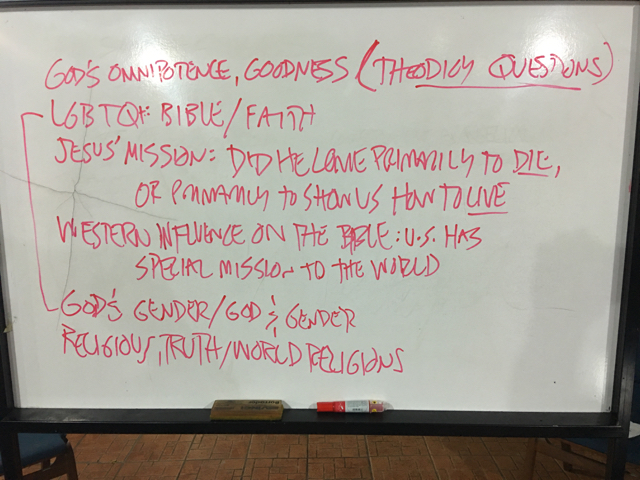 GOD'S OMNIPOTENCE, GOODNESS (THEODICY QUESTIONS)
LGBTQ+: BIBLE/FAITH
JESUS' MISSION: DID HE COME PRIMARILY TO DIE,
OR PRIMARILY TO SHOW US HOW TO LIVE
WESTERN INFLUENCE ON THE BIBLE: U.S. HAS
SPECIAL MISSION TO THE WORLD
GOD'S GENDER/GOD & GENDER
RELIGIOUS, TRUTH/WORLD RELIGIONS